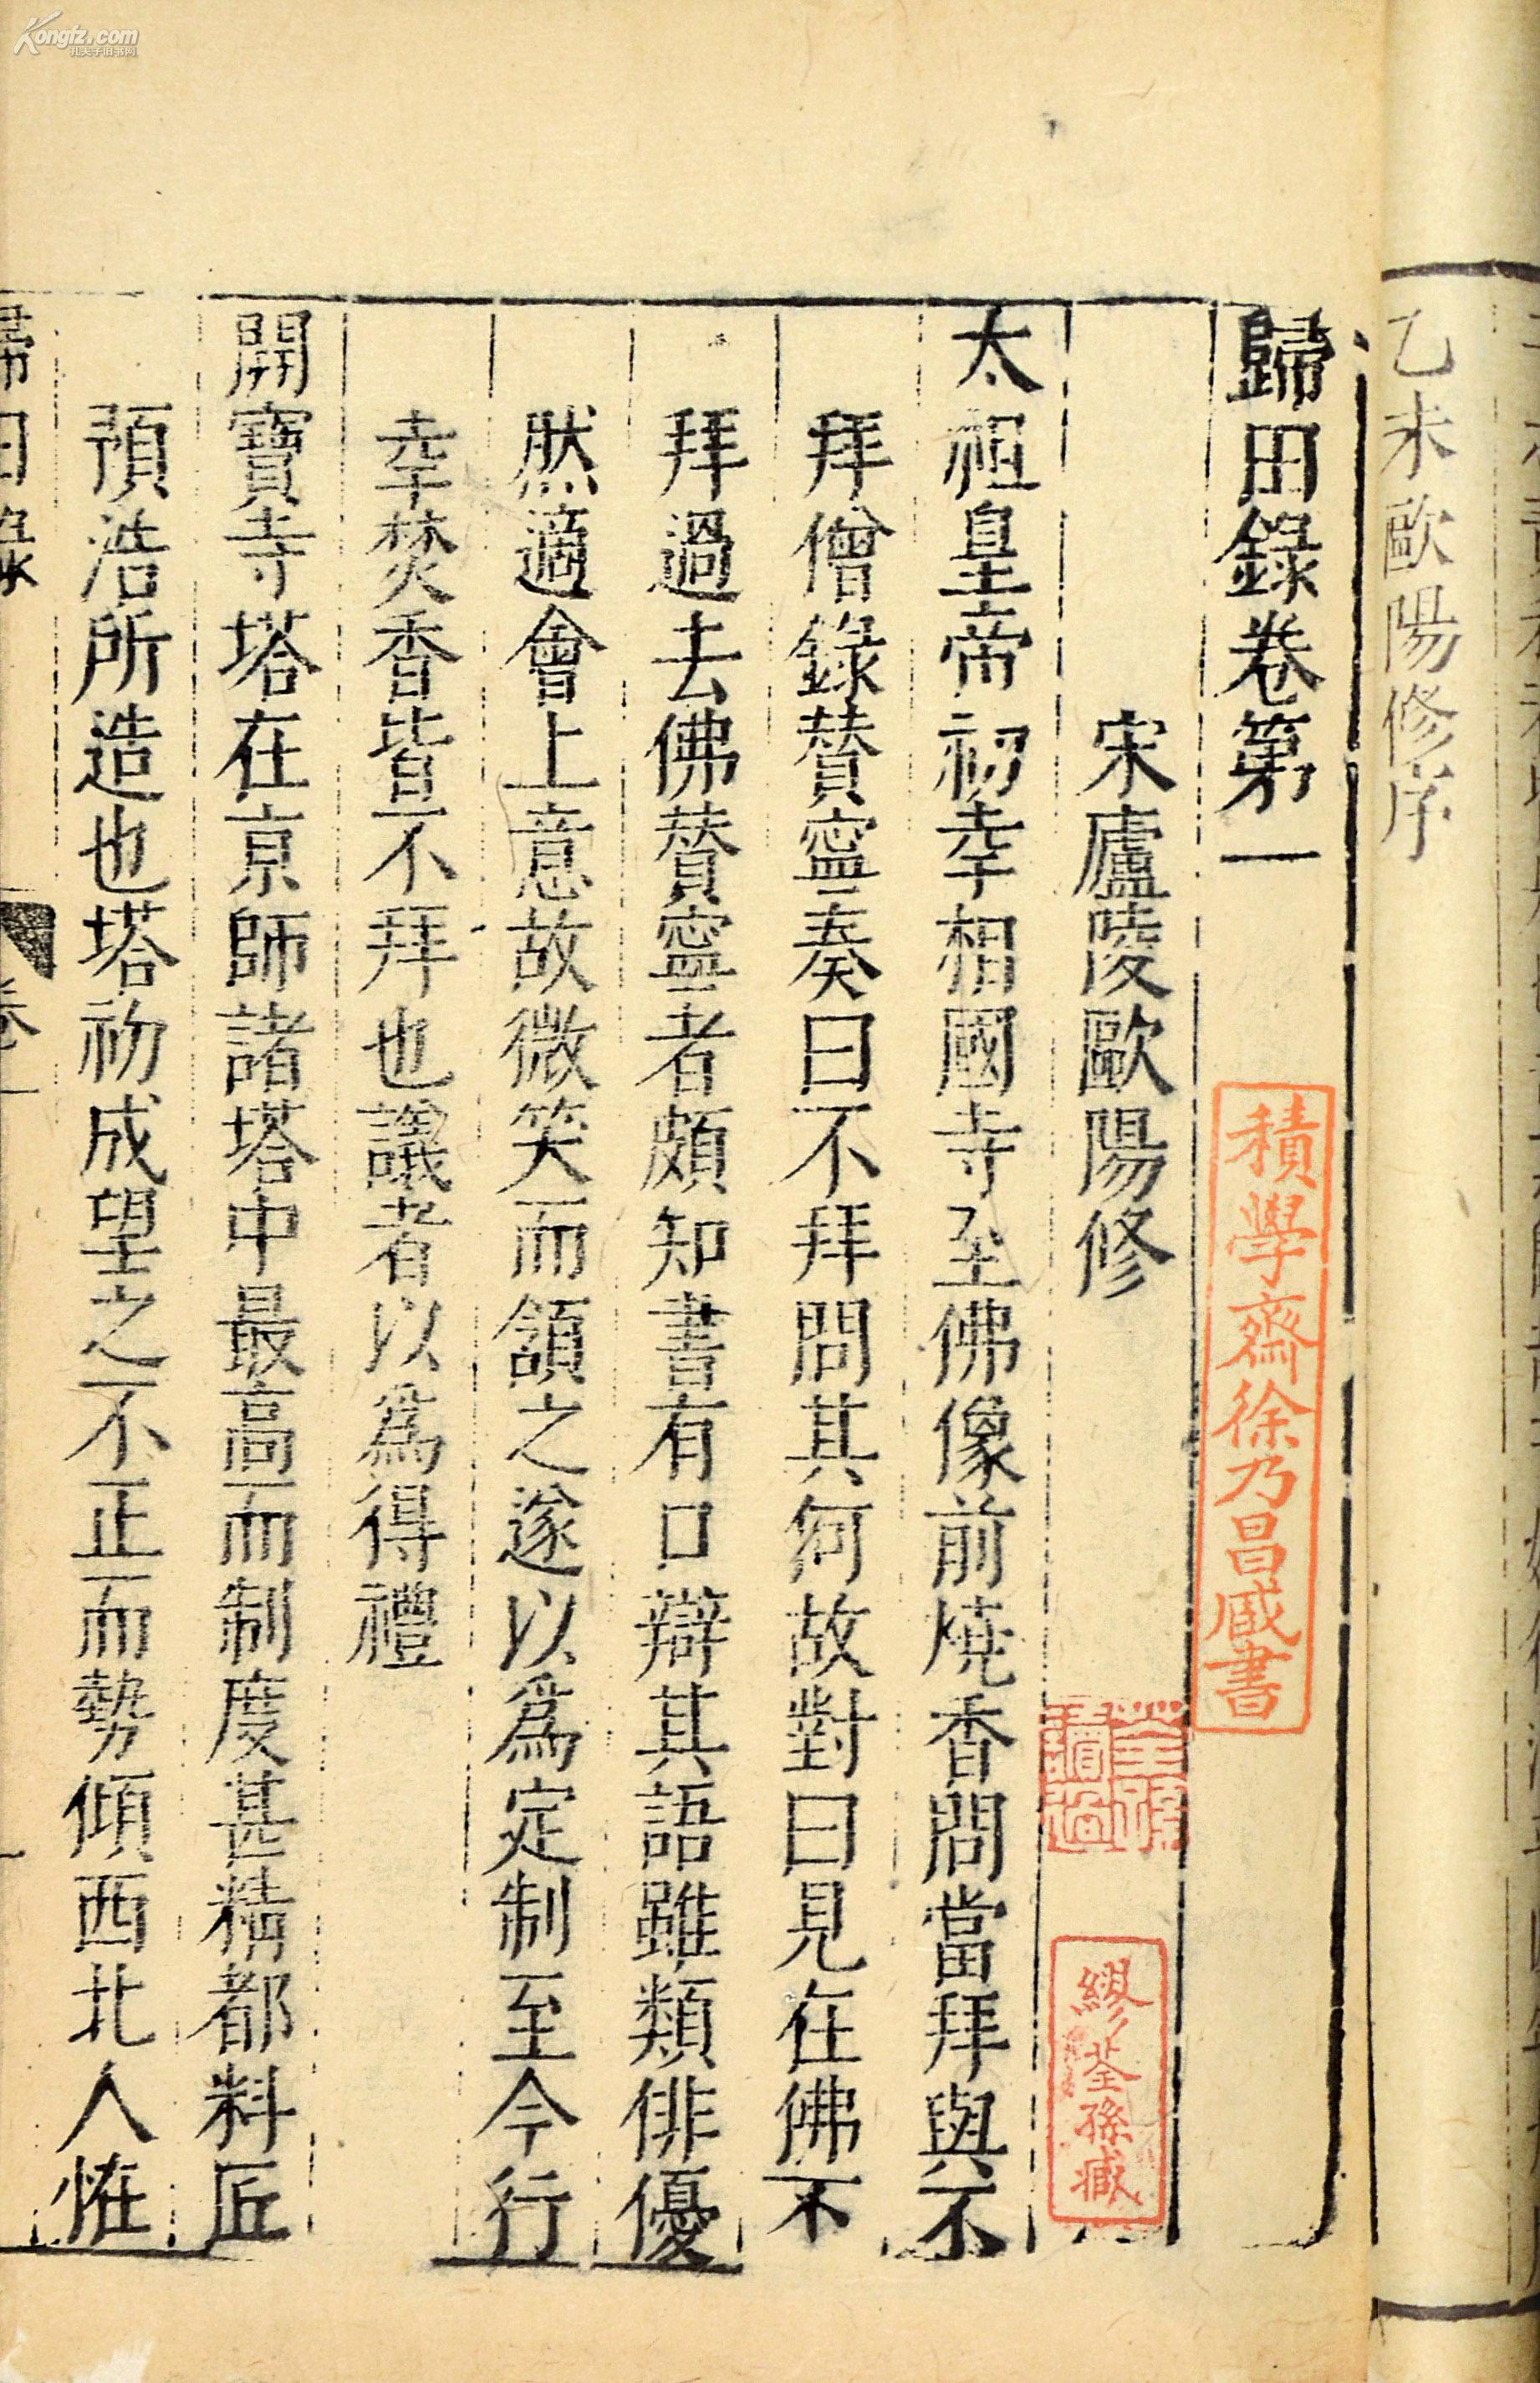 乙未歐陽修序
歸田錄卷第一
宋廬陵歐陽修
太祖皇帝初幸相國寺至佛像前燒香問當拜與不
拜僧錄贊寧奏曰不拜問其何故對曰見在佛不
拜過去佛贊寧者頗知書有口辯其語雖類俳優
然適會上意故微笑而頷之遂以爲定制至今行
幸焚香皆不拜也議者以爲得禮
開寶寺塔在京師諸塔中最高而制度甚精都料匠
預浩所造也塔初成望之不正而勢傾西北人恠
歸田錄
卷一
積學齋徐乃昌臧書
荃孫讀過
繆荃孫臧
Kongfz.com
孔夫子旧书网